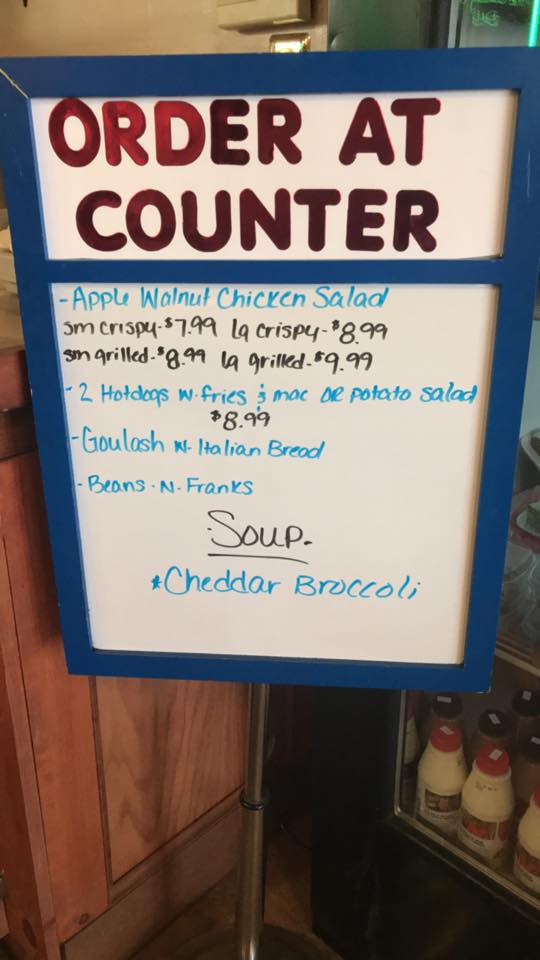 ORDER AT
COUNTER
- Apple Walnut Chicken Salad
sm crispy-$7.99 lg crispy-$8.99
sm grilled-$8.99 lg grilled-$9.99
- 2 Hotdogs w. fries & mac OR potato salad
$8.99
- Goulash w- Italian Bread
- Beans-N-Franks
Soup-
*Cheddar Broccoli